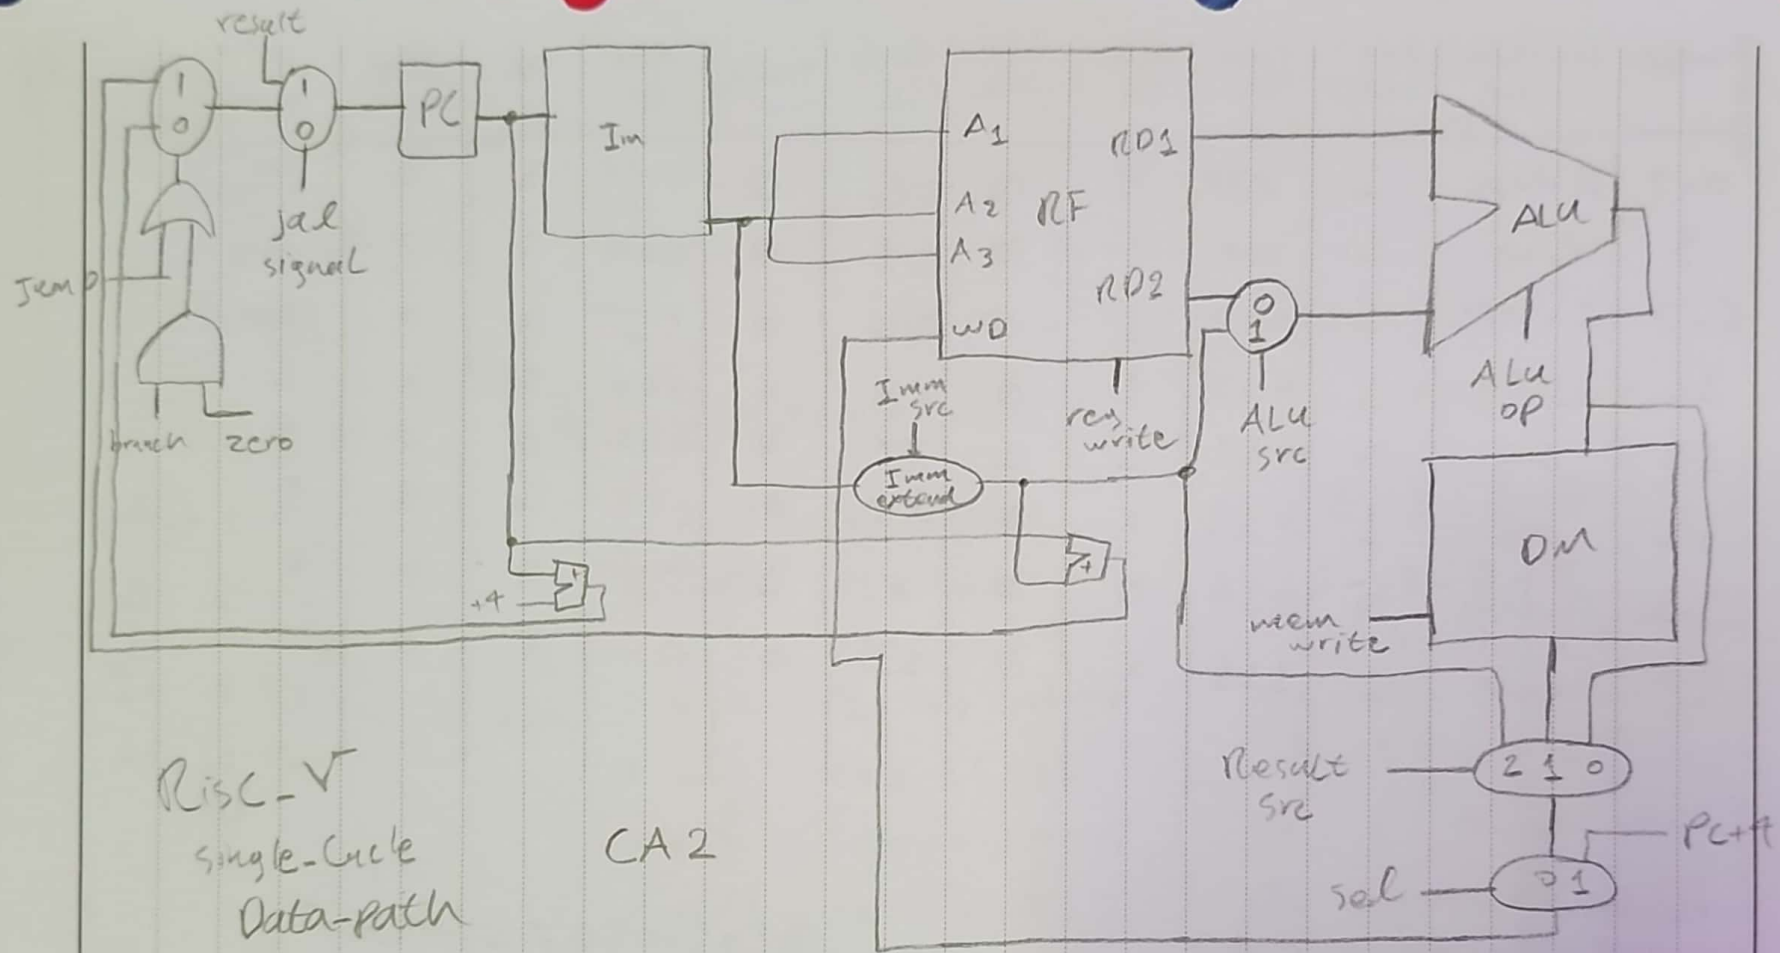 result
1
0
1
0
PC
Im
A1
A2
A3
WD
RF
RD1
RD2
ALU
jal
signal
Jump
branch
zero
0
1
Imm
src
Imm
extend
reg
write
ALU
src
ALU
op
+4
+
+
DM
mem
write
Result
src
2 1 0
PC+4
sel
0 1
Risc_V
Single-Cycle
Data-path
CA2